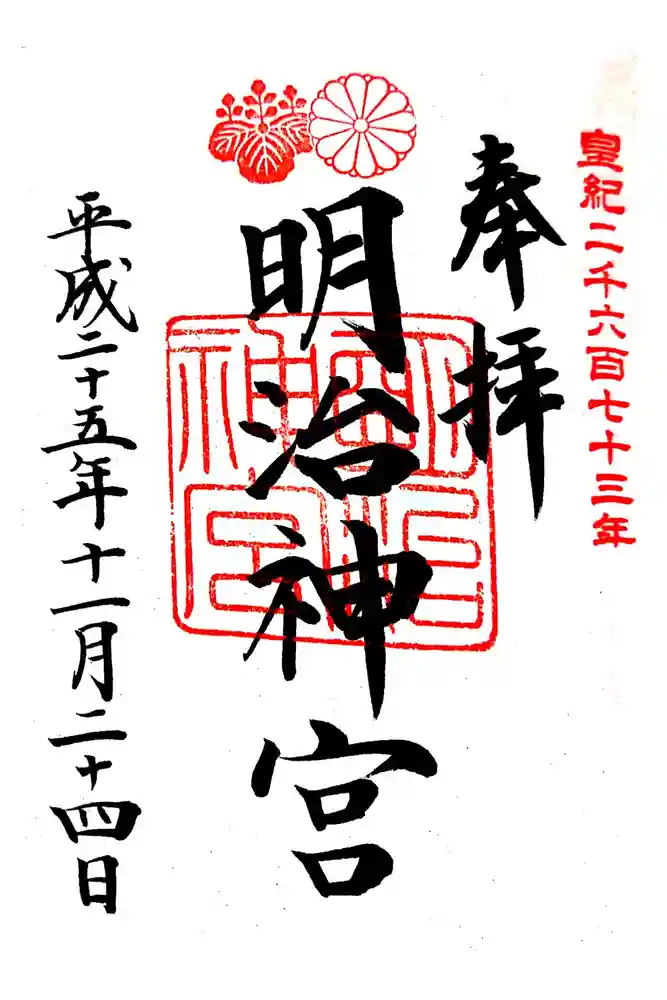 皇紀二千六百七十三年
奉拝
明治神宮
明治神宮
平成二十五年十一月二十四日